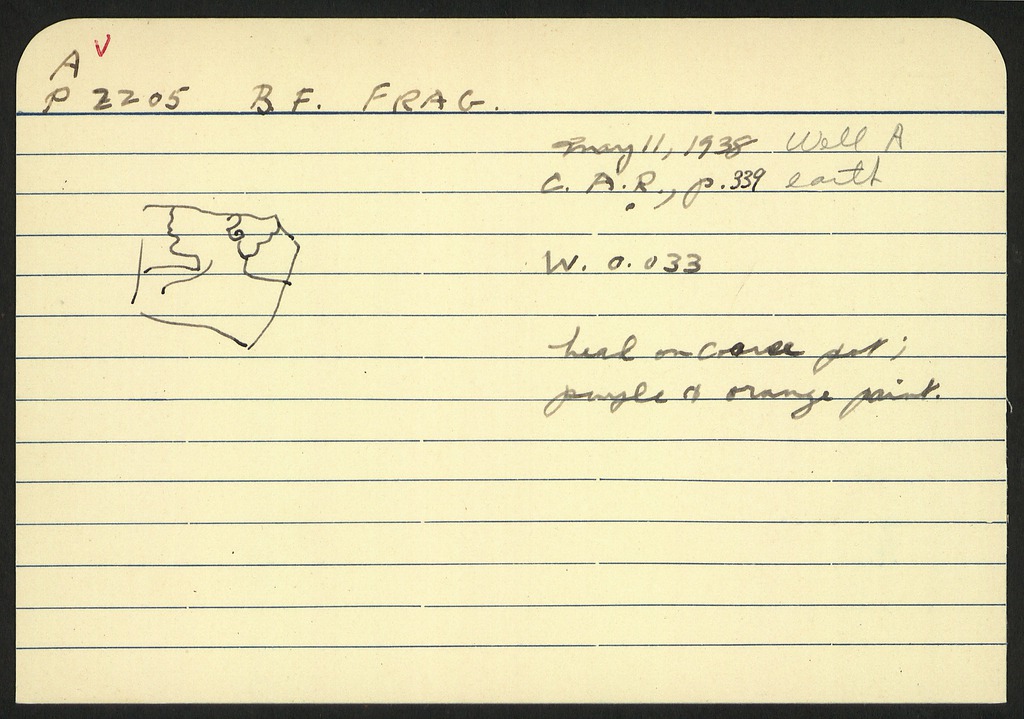 A V
P 2205 B.F. FRAG.
May 11, 1938 Well A
C. A. R., p. 339 earth
W. 0.033
head on coarse pot;
purple & orange paint.